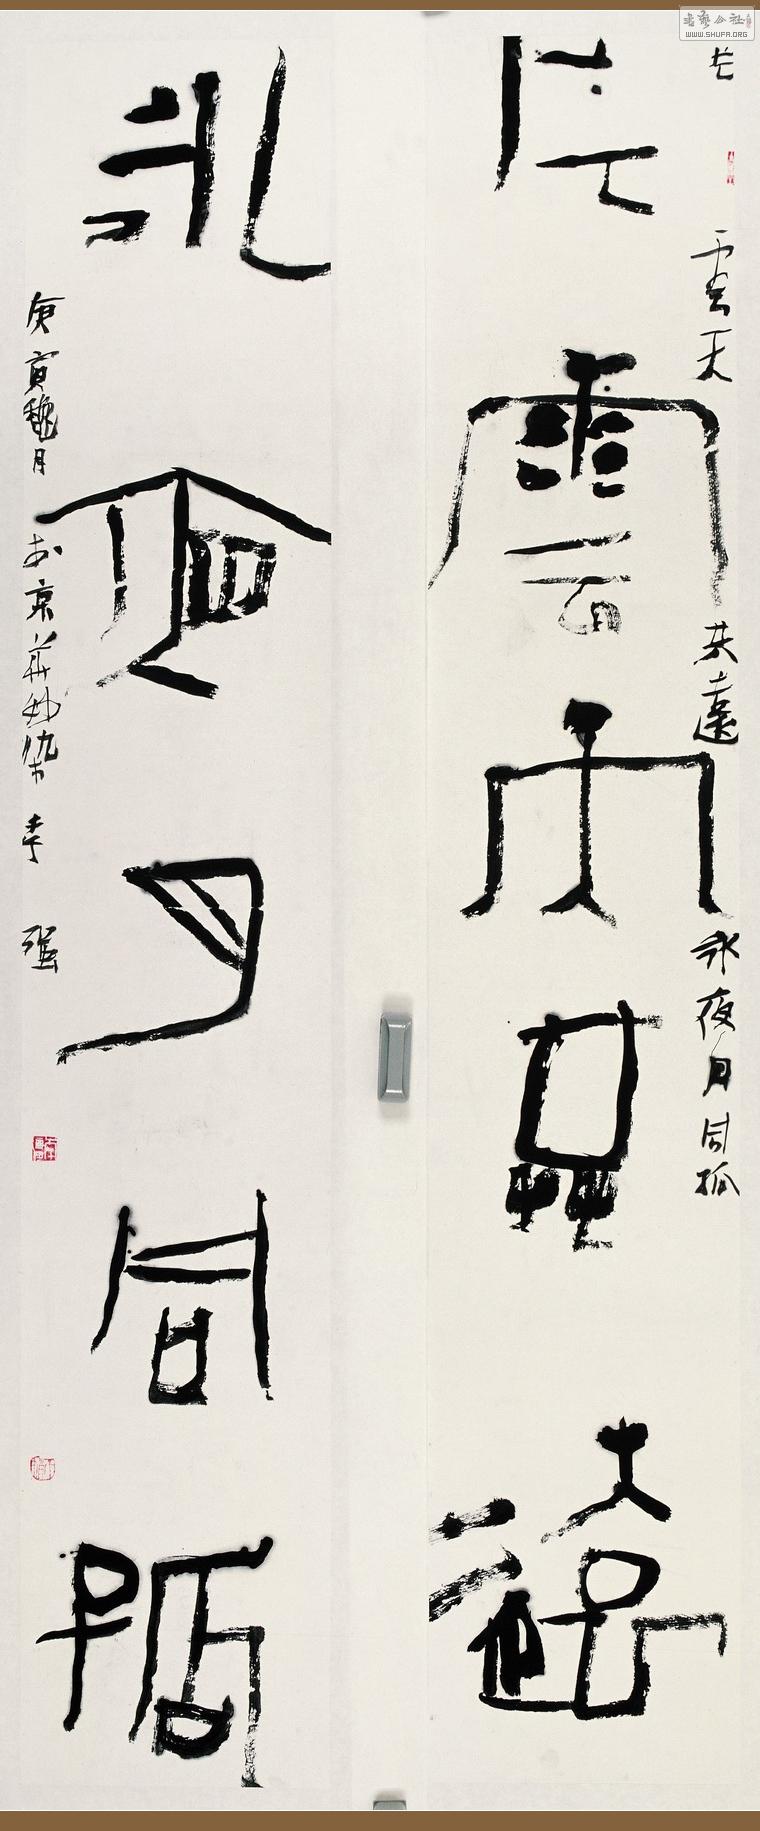 書藝公社
WWW.SHUFA.ORG
片雲天共遠永夜月同孤
片雲天共遠
永夜月同孤
庚寅月於京華李強